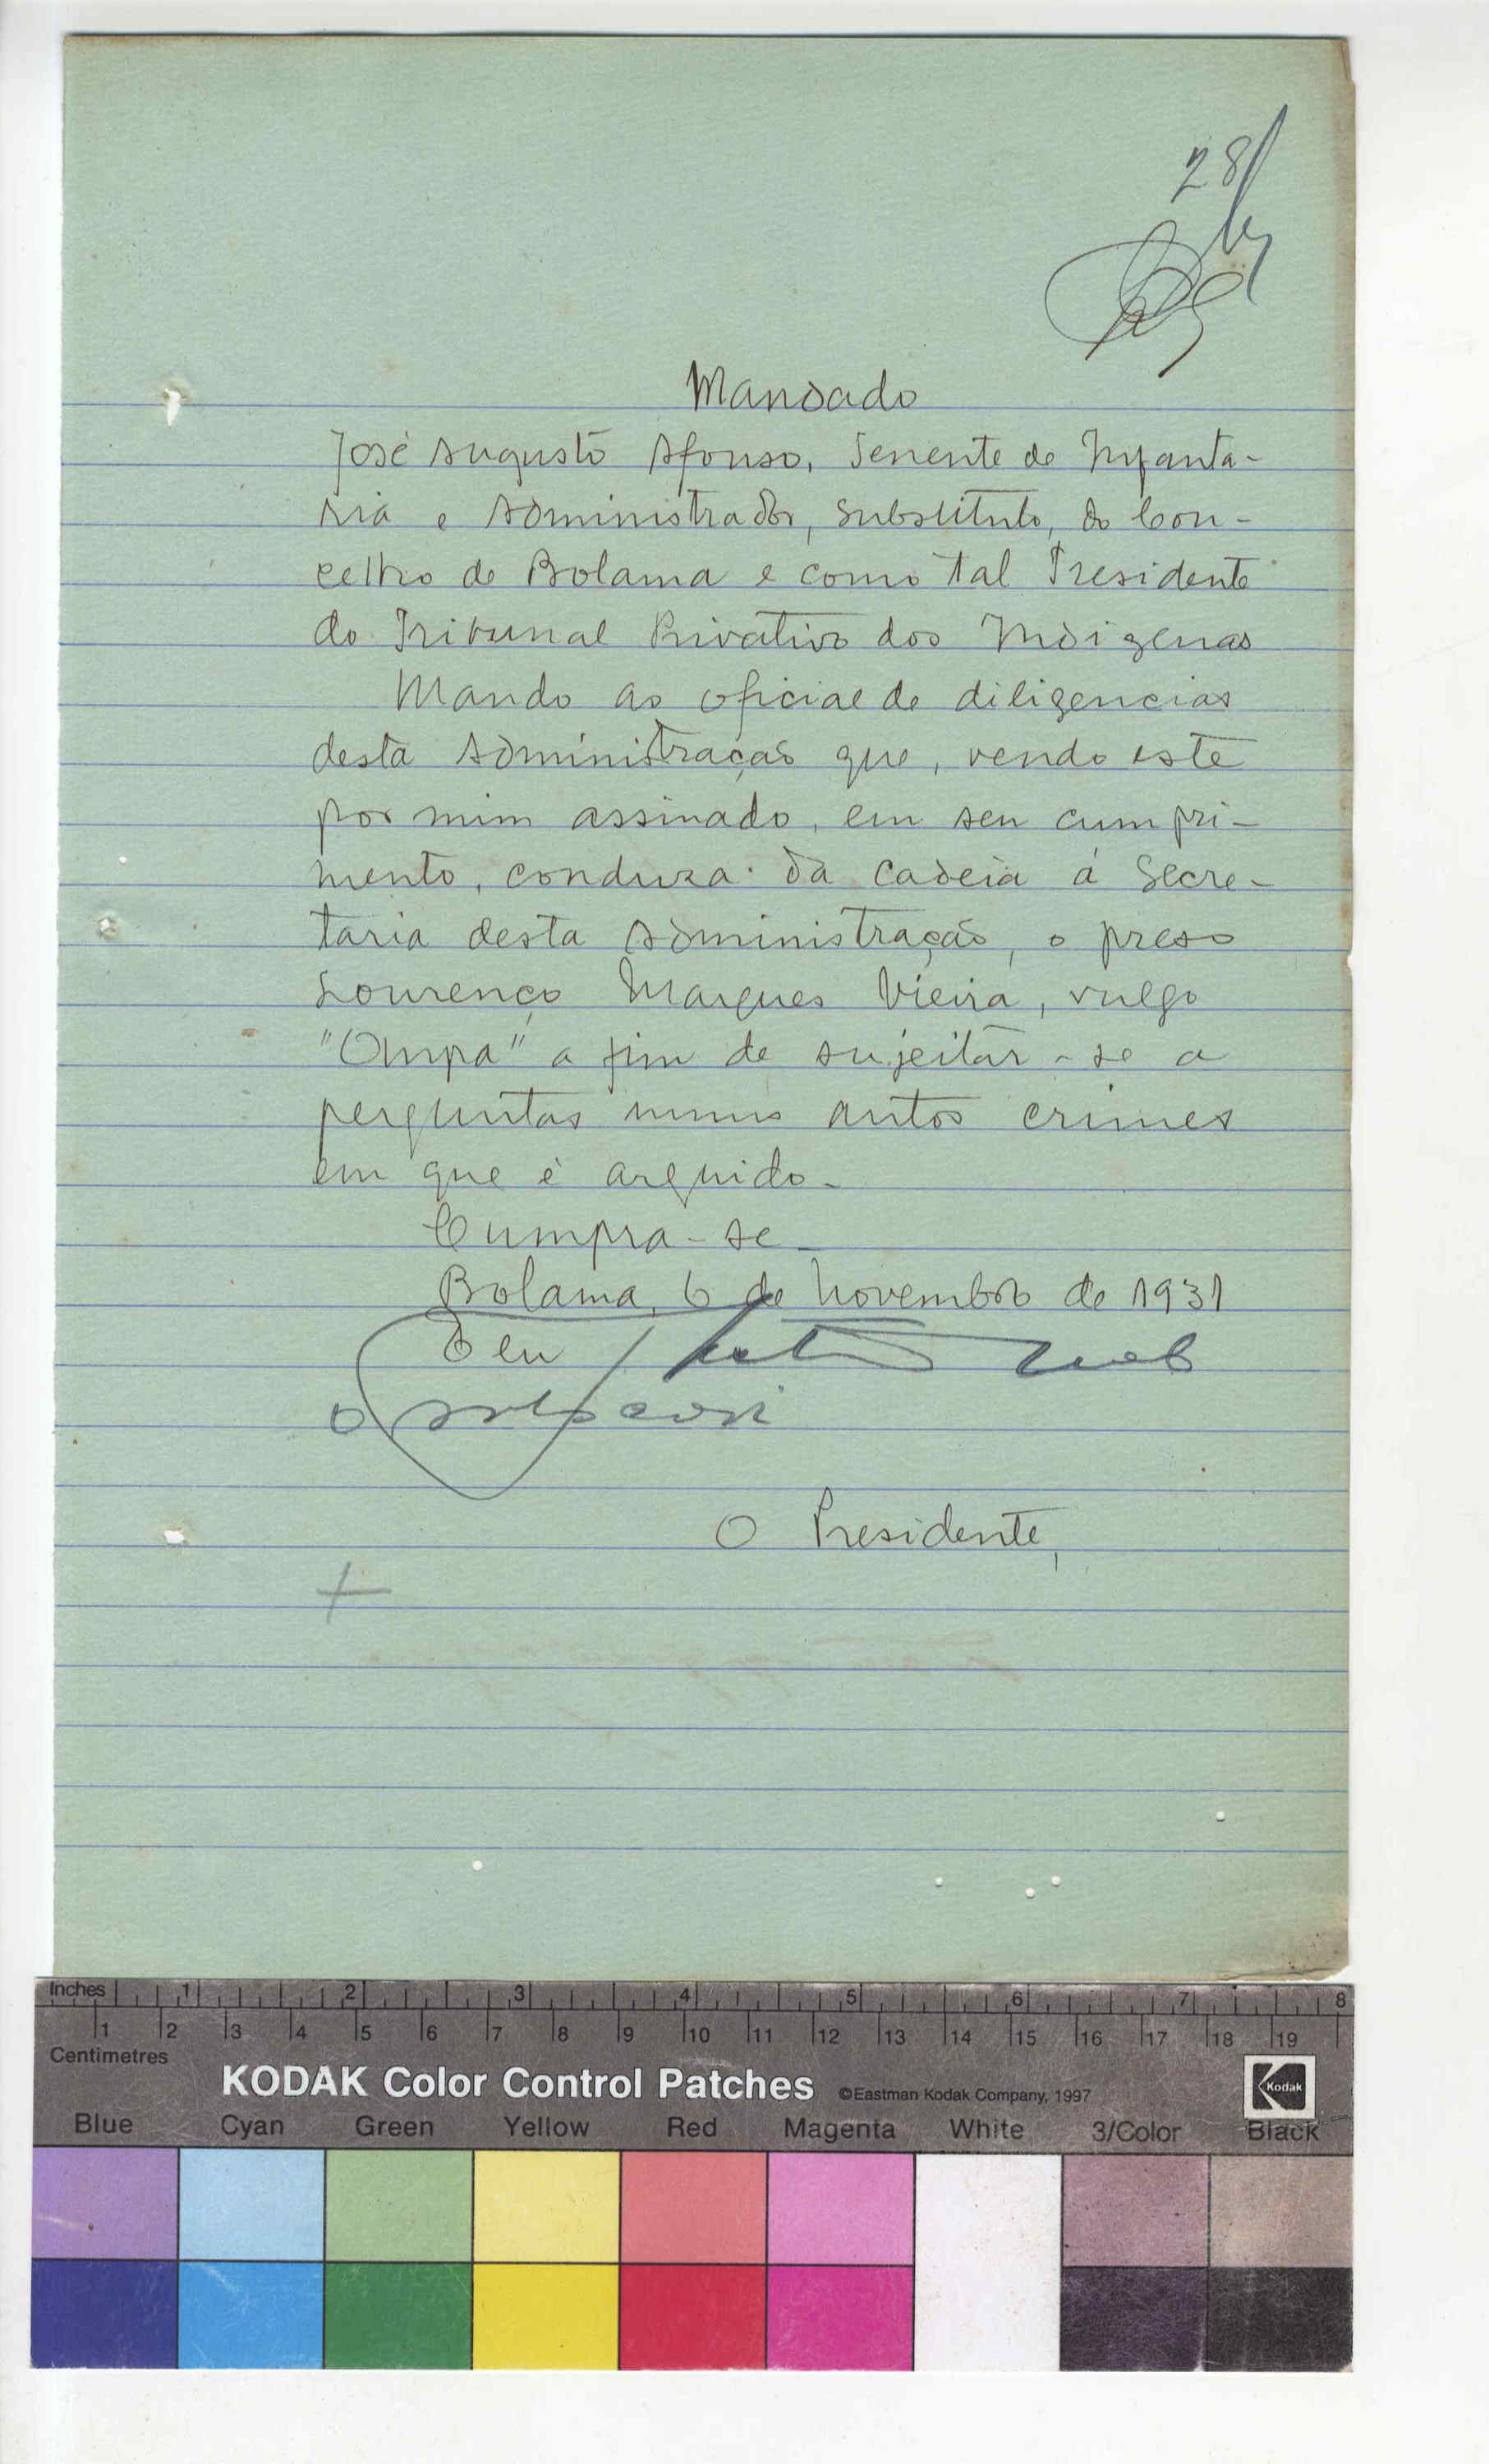 28
Mandado
José Augusto Afonso, Tenente de Infanta-
ria e Administrador, substituto, do Con-
celho de Bolama e como tal Presidente
do Tribunal Privativo dos Indigenas
Mando ao oficial de diligencias
desta Administração que, vendo este
por mim assinado, em seu cumpri-
mento, conduza da cadeia á Secre-
taria desta Administração, o preso
Lourenço Marques Vieira, vulgo
"Ompa" a fim de sujeitar-se a
perguntas nuns autos crimes
em que é arguido.
Cumpra-se
Bolama, 6 de Novembro de 1931
E eu
o subscrevi
O Presidente,
Inches 1 2 3 4 5 6 7 8
1 2 3 4 5 6 7 8 9 10 11 12 13 14 15 16 17 18 19
Centimetres
KODAK Color Control Patches ©Eastman Kodak Company, 1997 Kodak
Blue Cyan Green Yellow Red Magenta White 3/Color Black